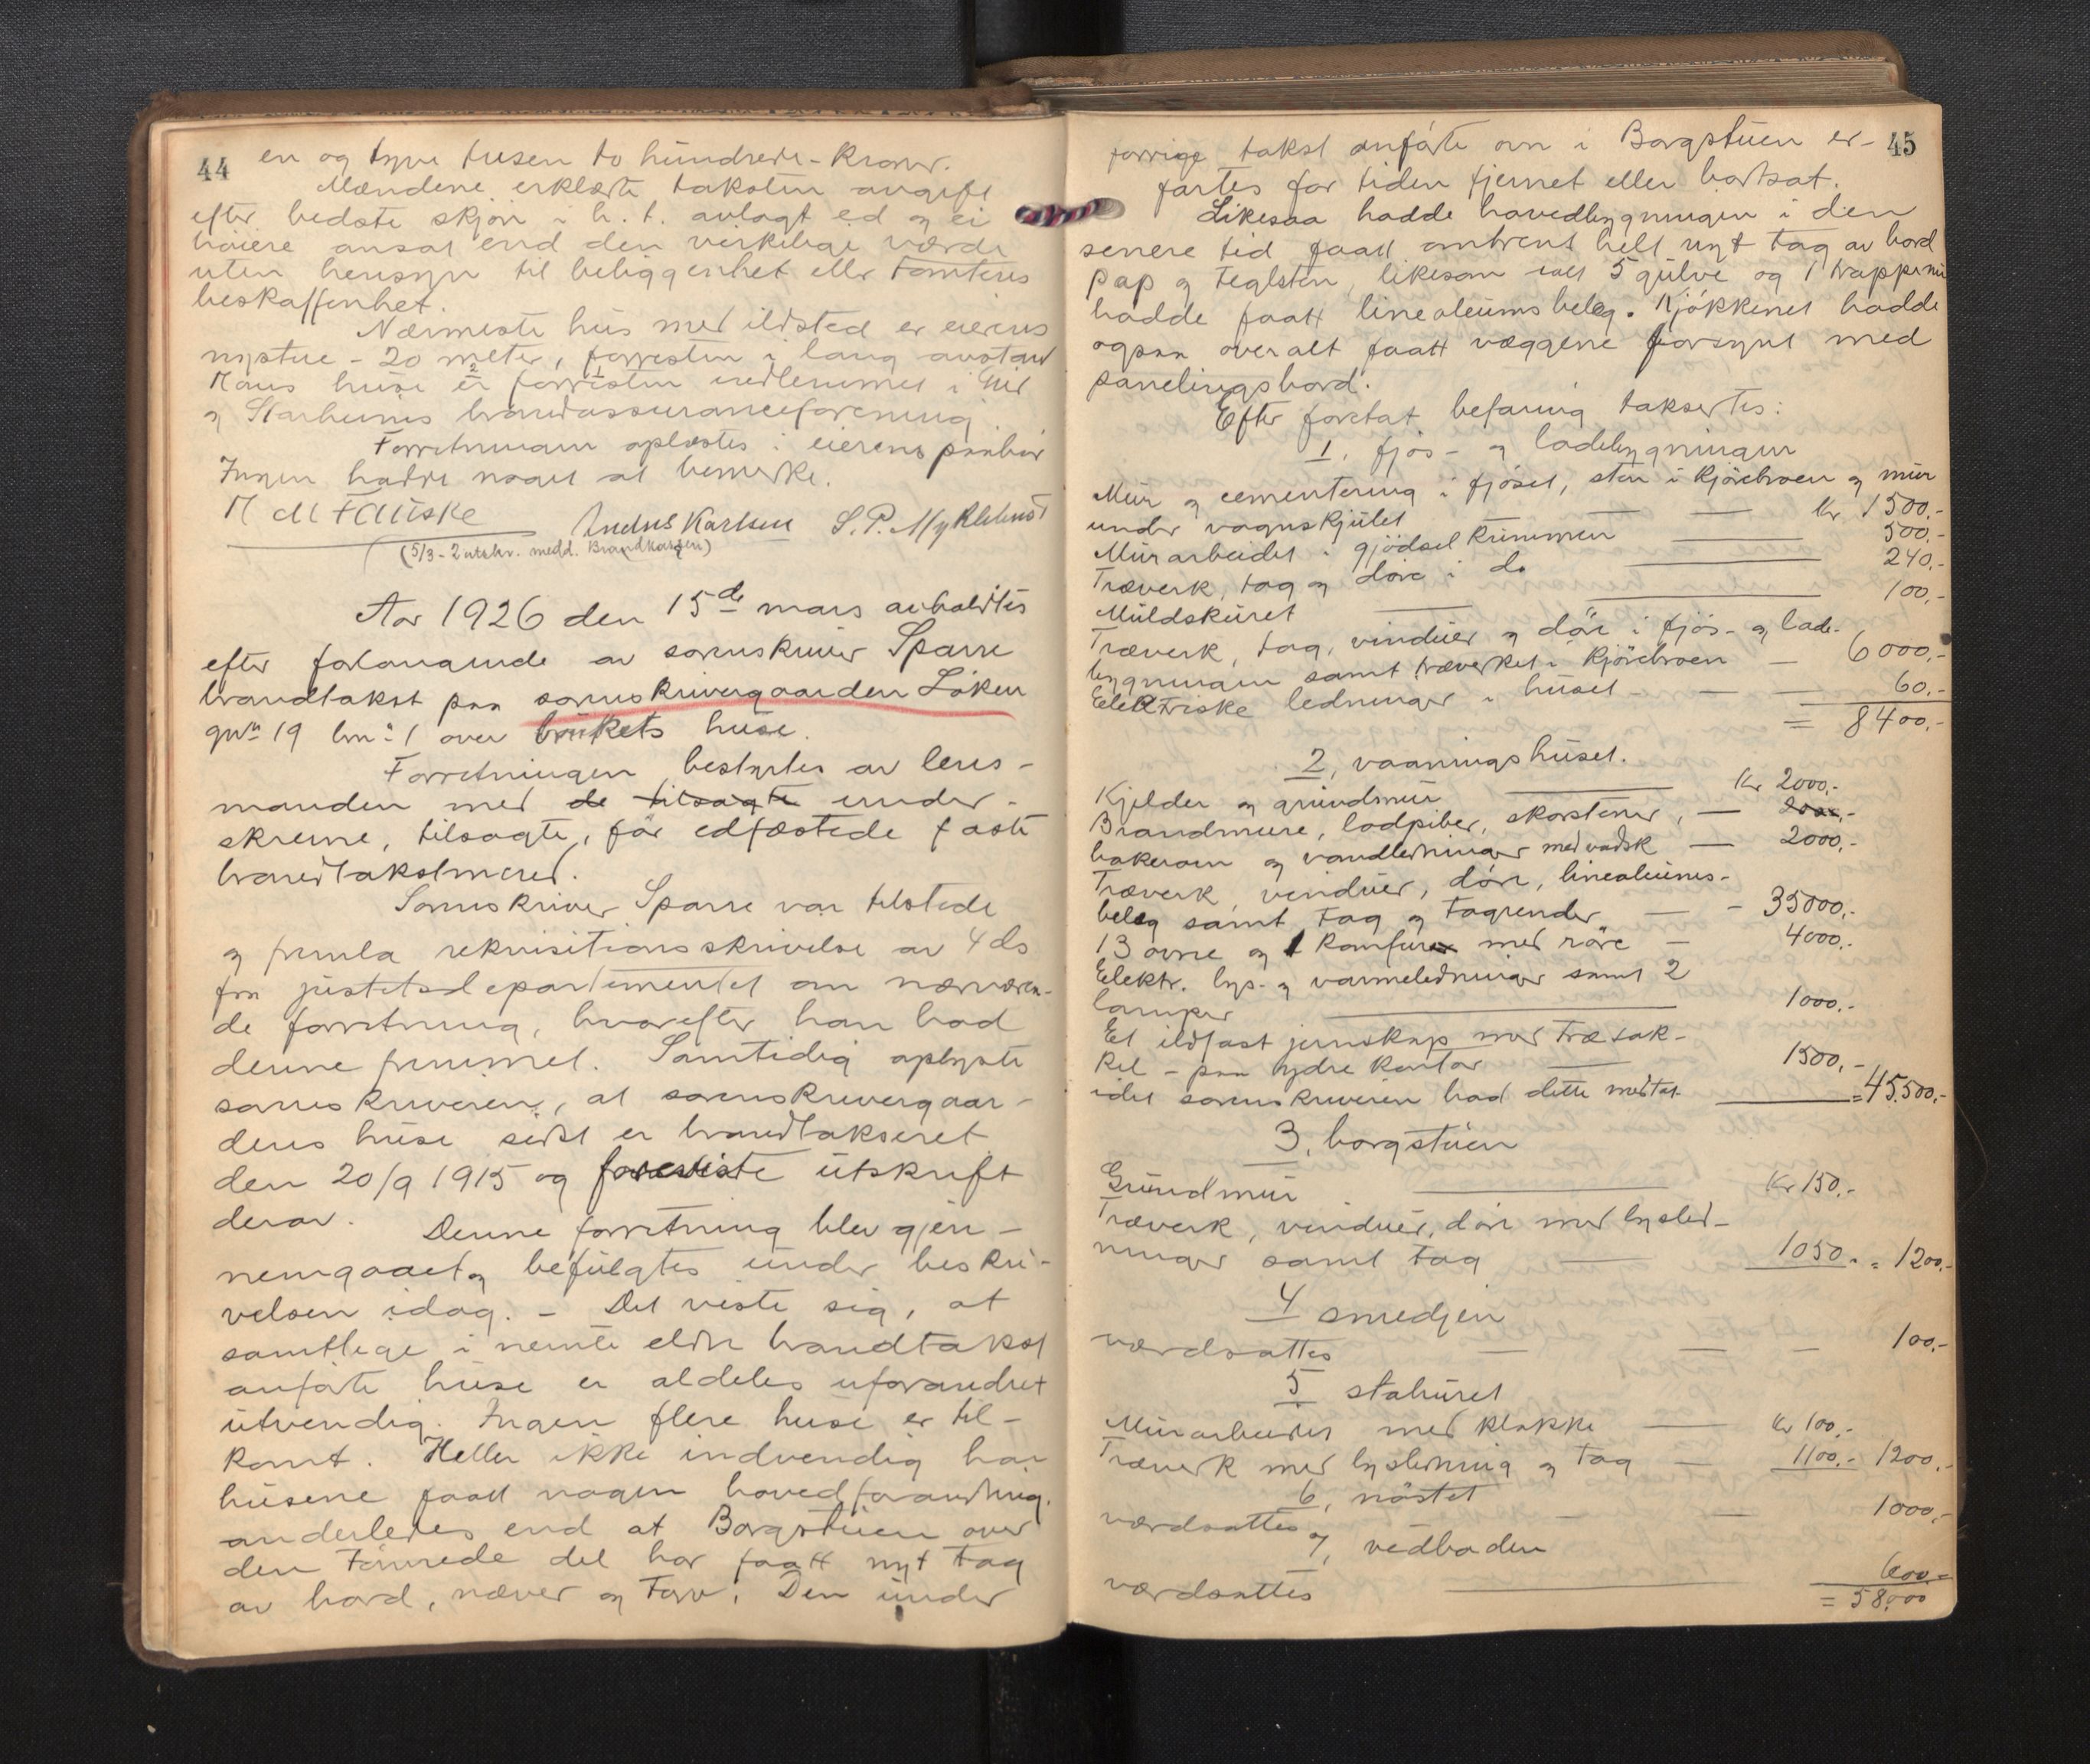 44
en og tyve tusen to hundrede - kroner.
Mændene erklærte taksten avgift
efter bedste skjøn i h. t. avlagt ed og ei
høiere ansat end den virkelige værdi
uten hensyn til beliggenhet eller tomtens
beskaffenhet.
Nærmeste hus med ildsted er eierens
nystue - 20 meter, forresten i lang avstand
Hans huse er forresten indlemmet i Eid
og Starheims brandassuranceforening.
Forretningen oplæstes i eierens paahør
Ingen hadde noget at bemerke.
Andreas Karlsen S. P. Myklebust
(5/3 - 2 utskr. medd. Brandkassen)
Aar 1926 den 15de mars avholdtes
efter forlangende av sorenskriver Sparre
brandtakst paa sorenskrivergaarden Løken
gnr 19 bnr 1 over brukets huse.
Forretningen bestyrtes av lens-
manden med de tilsagte under-
skrevne, tilsagte, før edfæstede faste
brandtakstmænd.
Sorenskriver Sparre var tilstede
og fremla rekvisitionsskrivelse av 4 ds
fra justitsdepartementet om nærværen-
de forretning, hvorefter han bad
denne fremmet. Samtidig oplyste
sorenskriveren, at sorenskrivergaar-
dens huse sidst er brandtakseret
den 20/9 1915 og foreviste utskrift
derav.
Denne forretning blev gjen-
nemgaaet og befulgtes under beskri-
velsen idag. - Det viste sig, at
samtlege i nemte eldre brandtakst
anførte huse er aldeles uforandret
utvendig. Ingen flere huse er til-
komt. Heller ikke indvendig har
husene faatt nogen hovedforandring.
anderledes end at Borgstuen over
den tømrede del har faatt nyt tag
av bord, næver og torv. Den under
45
forrige takst anførte ovn i Borgstuen er-
fartes for tiden fjernet eller bortsat.
Likesaa hadde hovedbygningen i den
senere tid faatt omtrent helt nyt tag av bord
pap og teglsten, likesom ialt 5 gulve og 1 trapp
hadde faatt linealeumsbeleg. Kjøkkenet hadde
ogsaa overalt faatt væggene forsynt med
panelingsbord.
Efter foretat befaring taksertes:
1. fjøs- og ladebygningen
Mur og cementering i fjøset, sten i kjørebroen og mur
under vognskjulet — — kr 1500.-
Murarbeidet i gjødselkummen — 500.-
Træverk, tag og døre i do — 240.-
Muldskuret — — 100.-
Træverk, tag, vinduer og døre i fjøs- og lade-
bygningen samt træverket i kjørebroen — 6000.-
Elektriske ledninger i huset — — — 60.-
= 8400.-
2, vaaningshuset.
Kjelder og grundmur — Kr 2000.-
Brandmure, lodpiber, skorstener, — 2000.-
bakerovn og vandledninger med vadsk — 2000.-
Træverk, vinduer, døre, linealeums-
beleg samt tag og tagrender — - 35000.-
13 ovne og 1 komfur med røre — 4000.-
Elektr. lys- og varmeledninger samt 2
lamper — 1000.-
Et ildfast jernskap med træsok-
kel - paa ydre kontor — 1500.-
idet sorenskriveren bad dette medtat. — = 45.500.-
3. borgstuen
Grundmur — Kr 150.-
Træverk, vinduer, døre med lysled-
ninger samt tag — 1050.- = 1200.-
4 smedjen
værdsattes — — — 100.-
5 staburet
Murarbeidet med klokke — kr 100.-
Træverk med lysledning og tag — 1100.- 1200.-
6, nøstet
værdsattes — — 1000.-
7, vedboden
værdsattes — 600.-
= 58.000